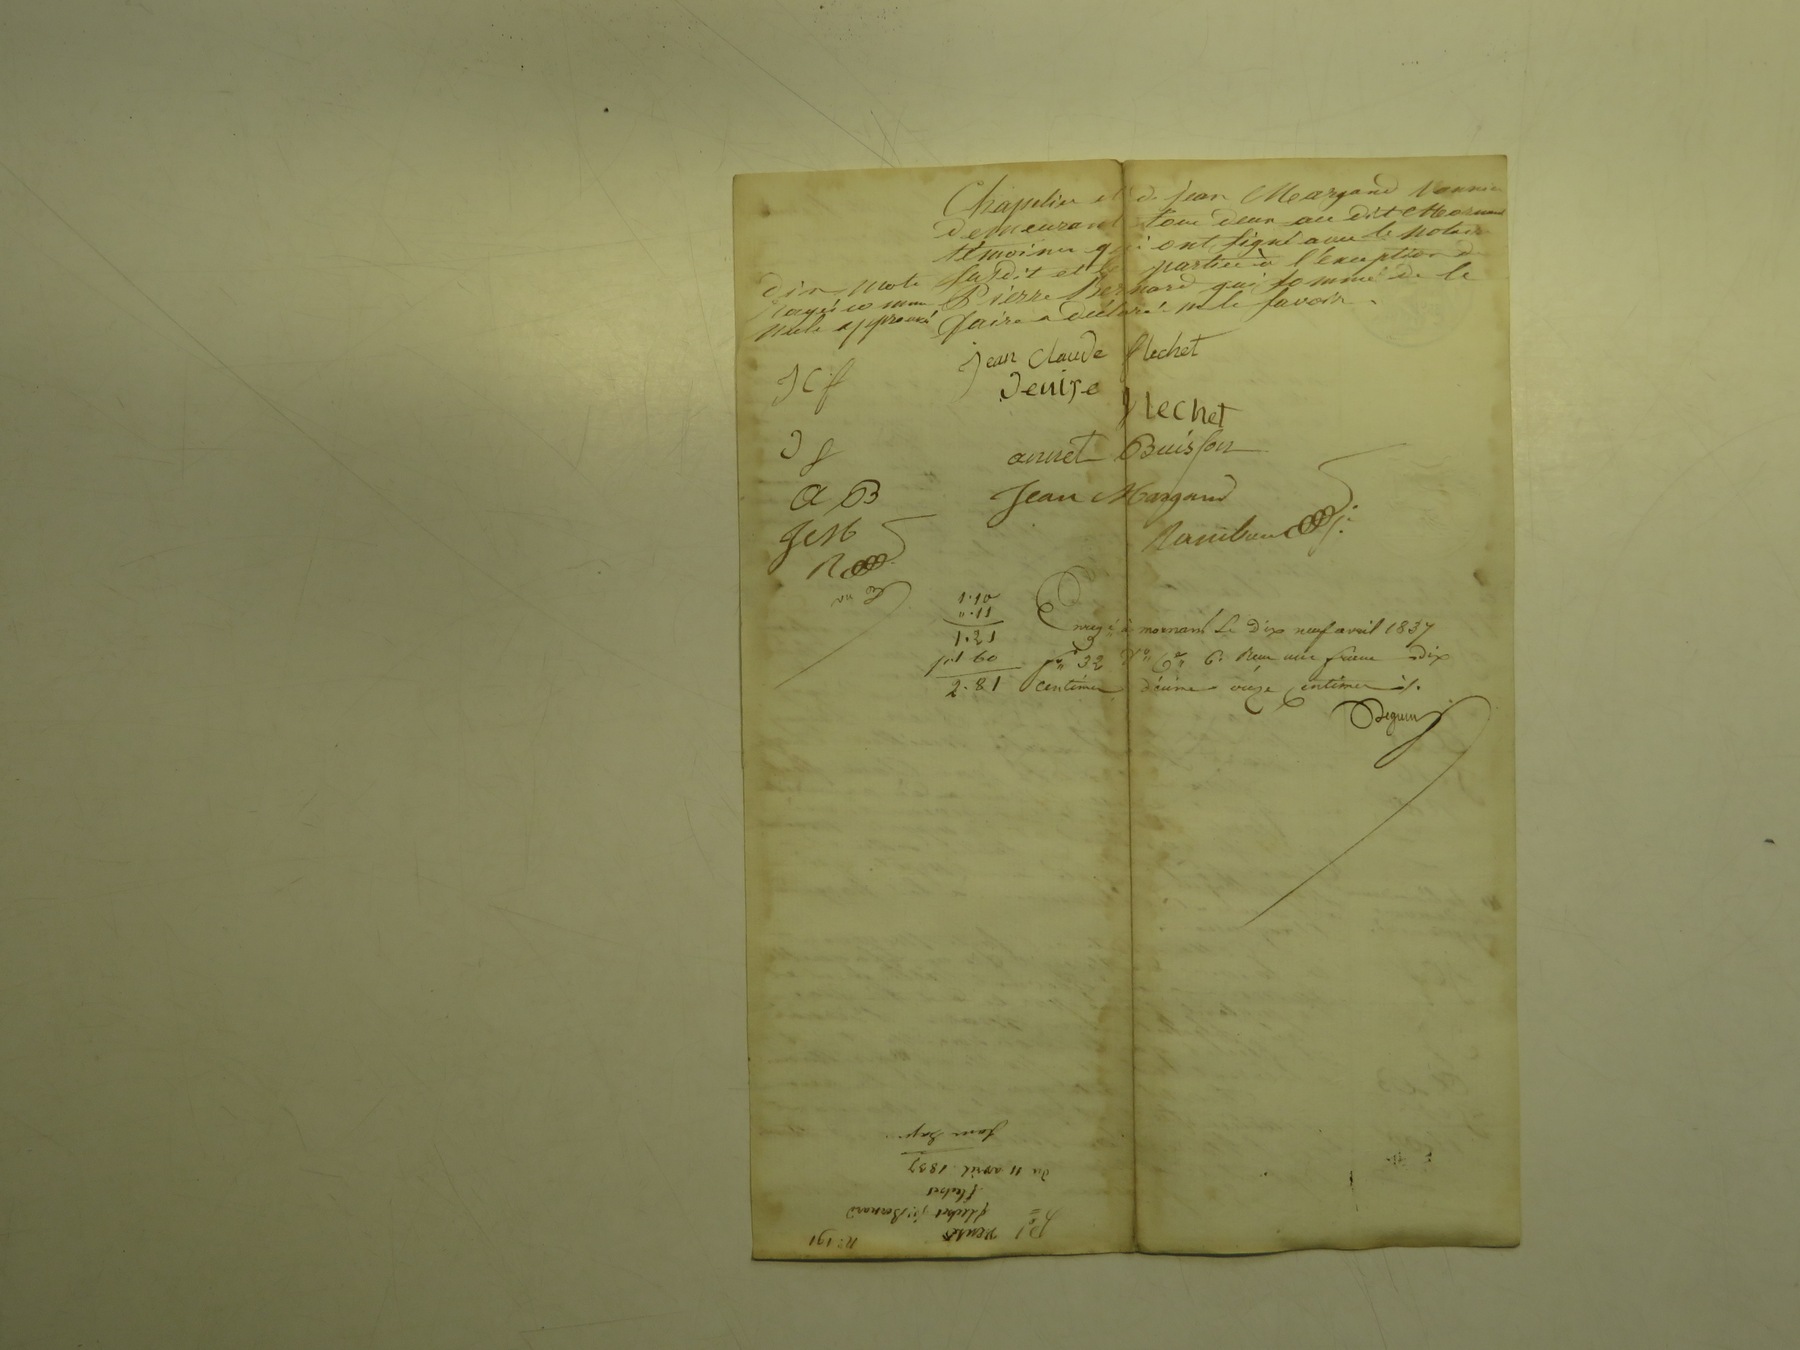 Chapelier et de Jean Margand Vannier
demeurant tous deux au dit Mornant
témoins qui ont signé avec le notaire
susdit et les parties à l'exception de
Pierre Bernard qui sommé de le
faire a déclaré ne le savoir.
dix mots
rayés comme
nuls approuvé
Jean Claude flechet
Denise flechet
annet Buisson
Jean Margand
J C f
D f
a B
R
1.10
".11
1.21
1.60
2.81
Enregé à mornant le dix neuf avril 1837
fo 32 Vo Co 6. Reçu un franc dix
centimes décime onze centimes
Deguin
No 191
flechet Bernard
flechet
du 11 avril 1837